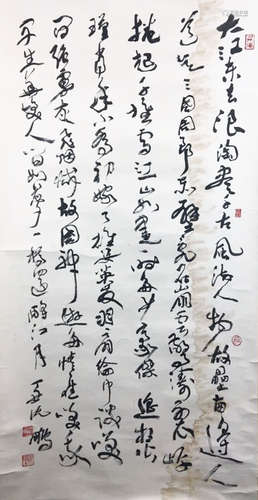 大江东去浪淘尽千古风流人物故壘西邊人
道是三国周郎赤壁乱石崩云惊涛裂岸
捲起千堆雪江山如画一时多少豪傑
瑾当年小乔初嫁了雄姿英发羽扇纶巾谈笑
间强虏灰飞烟灭故国神遊多情应笑我
早生华发人间如梦一樽还酹江月 沈鹏